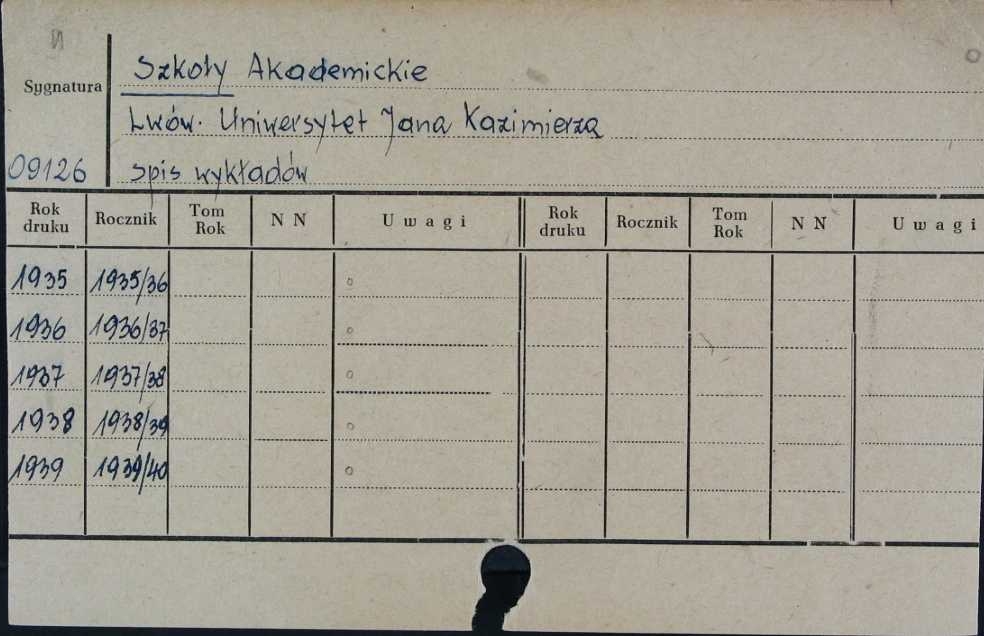 Szkoły Akademickie
Sygnatura
Lwów. Uniwersytet Jana Kazimierza
09126 spis wykładów
Rok druku Rocznik Tom Rok N N Uwagi Rok druku Rocznik Tom Rok N N Uwagi
1935 1935/36
1936 1936/37
1937 1937/38
1938 1938/39
1939 1939/40